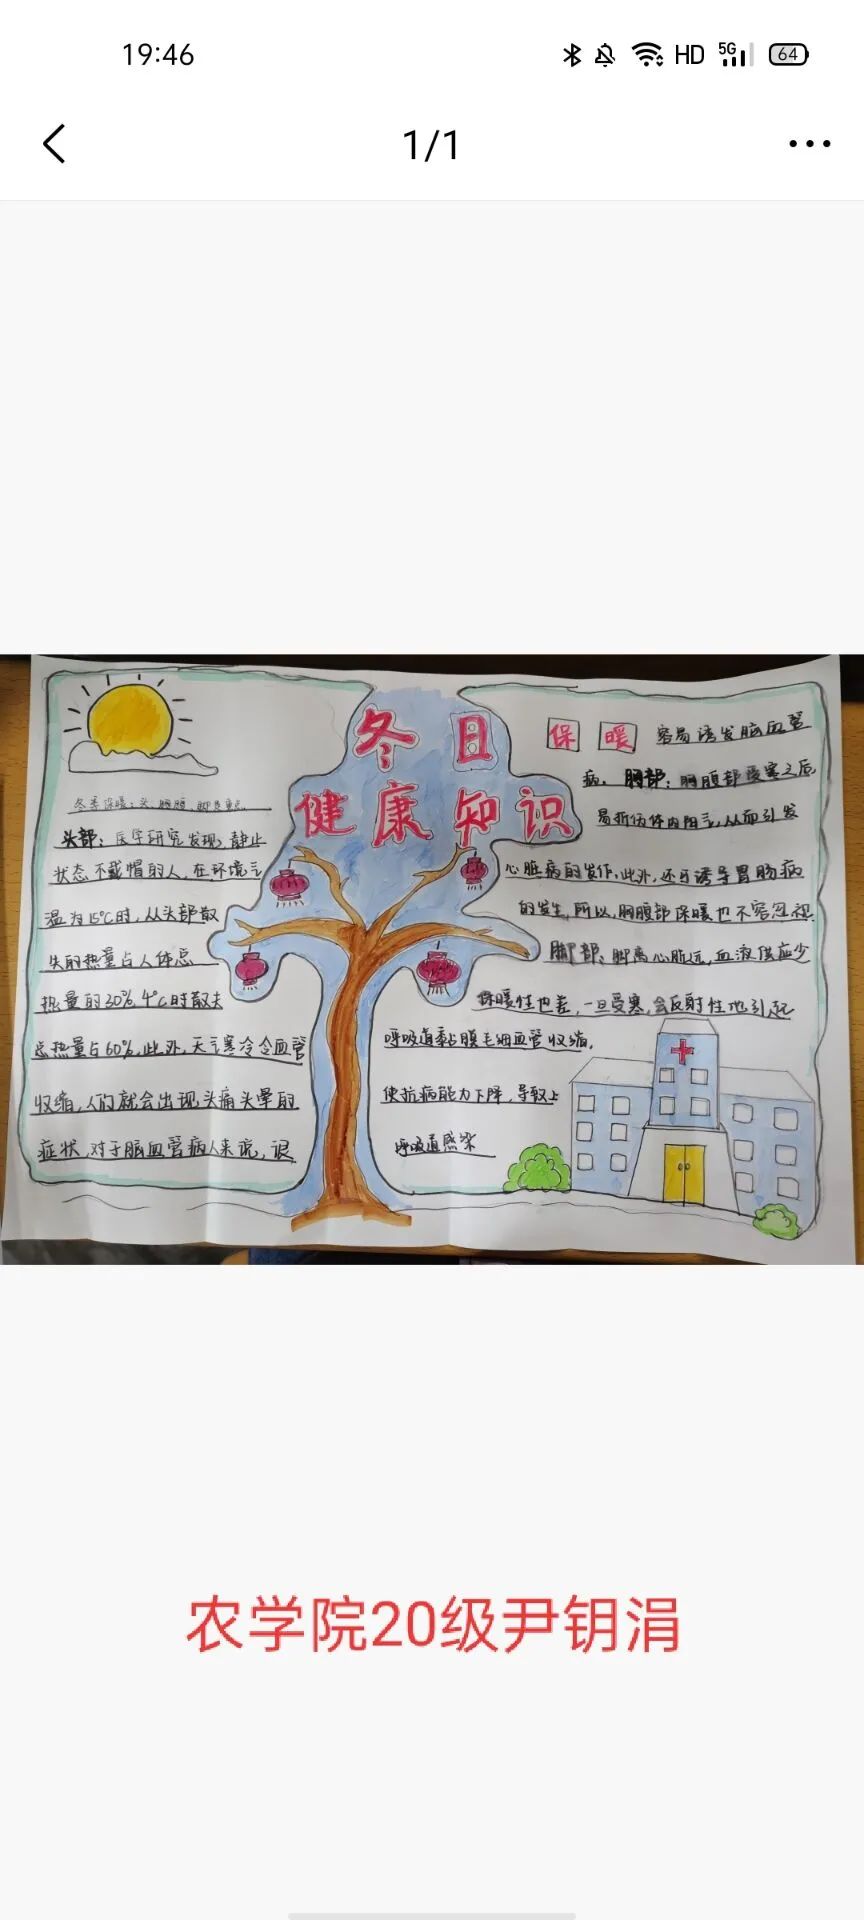 19:46
HD 5G 64
1/1
冬日
健康知识
保暖
冬季保暖:头、胸腹、脚是重点
头部:医学研究发现,静止
状态不戴帽的人,在环境气
温为15℃时,从头部散
失的热量占人体总
热量的30%,4℃时散失
总热量占60%,此外,天气寒冷令血管
收缩,人们就会出现头痛头晕的
症状,对于脑血管病人来说,很
容易诱发脑血管
病。胸部:胸腹部受寒之后
易折伤体内阳气,从而引发
心脏病的发作,此外,还可诱导胃肠病
的发生,所以,胸腹部保暖也不容忽视
脚部:脚离心脏远,血液供应少
保暖性也差,一旦受寒,会反射性地引起
呼吸道黏膜毛细血管收缩,
使抗病能力下降,导致上
呼吸道感染
农学院20级尹钥涓